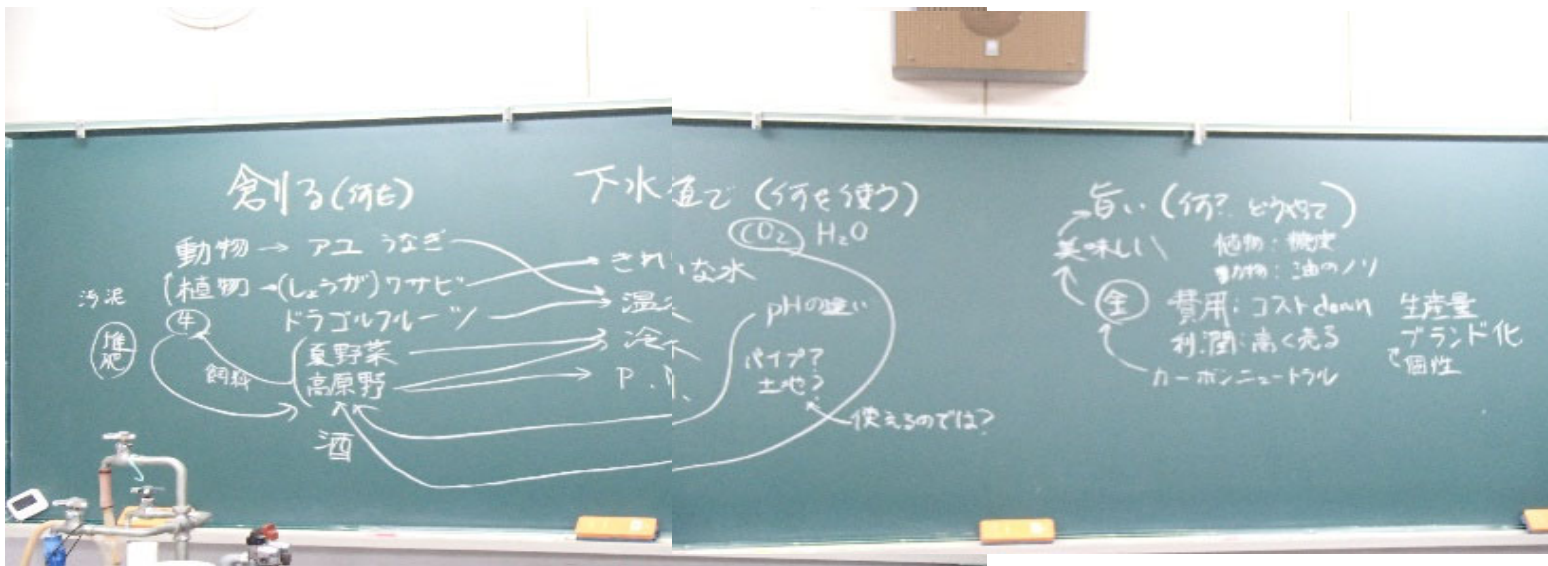 創る(何を)
動物→アユ うなぎ
植物→(しょうが)ワサビ
ドラゴルフルーツ
汚泥
堆肥
牛
飼料
夏野菜
高原野
酒
下水道で(何を使う)
CO2 H2O
きれいな水
pHの違い
パイプ?
土地?
使えるのでは?
旨い(何? どうやって)
美味しい
植物:糖度
動物:油のノリ
金
費用:コストdown
利潤:高く売る
カーボンニュートラル
生産量
ブランド化
個性